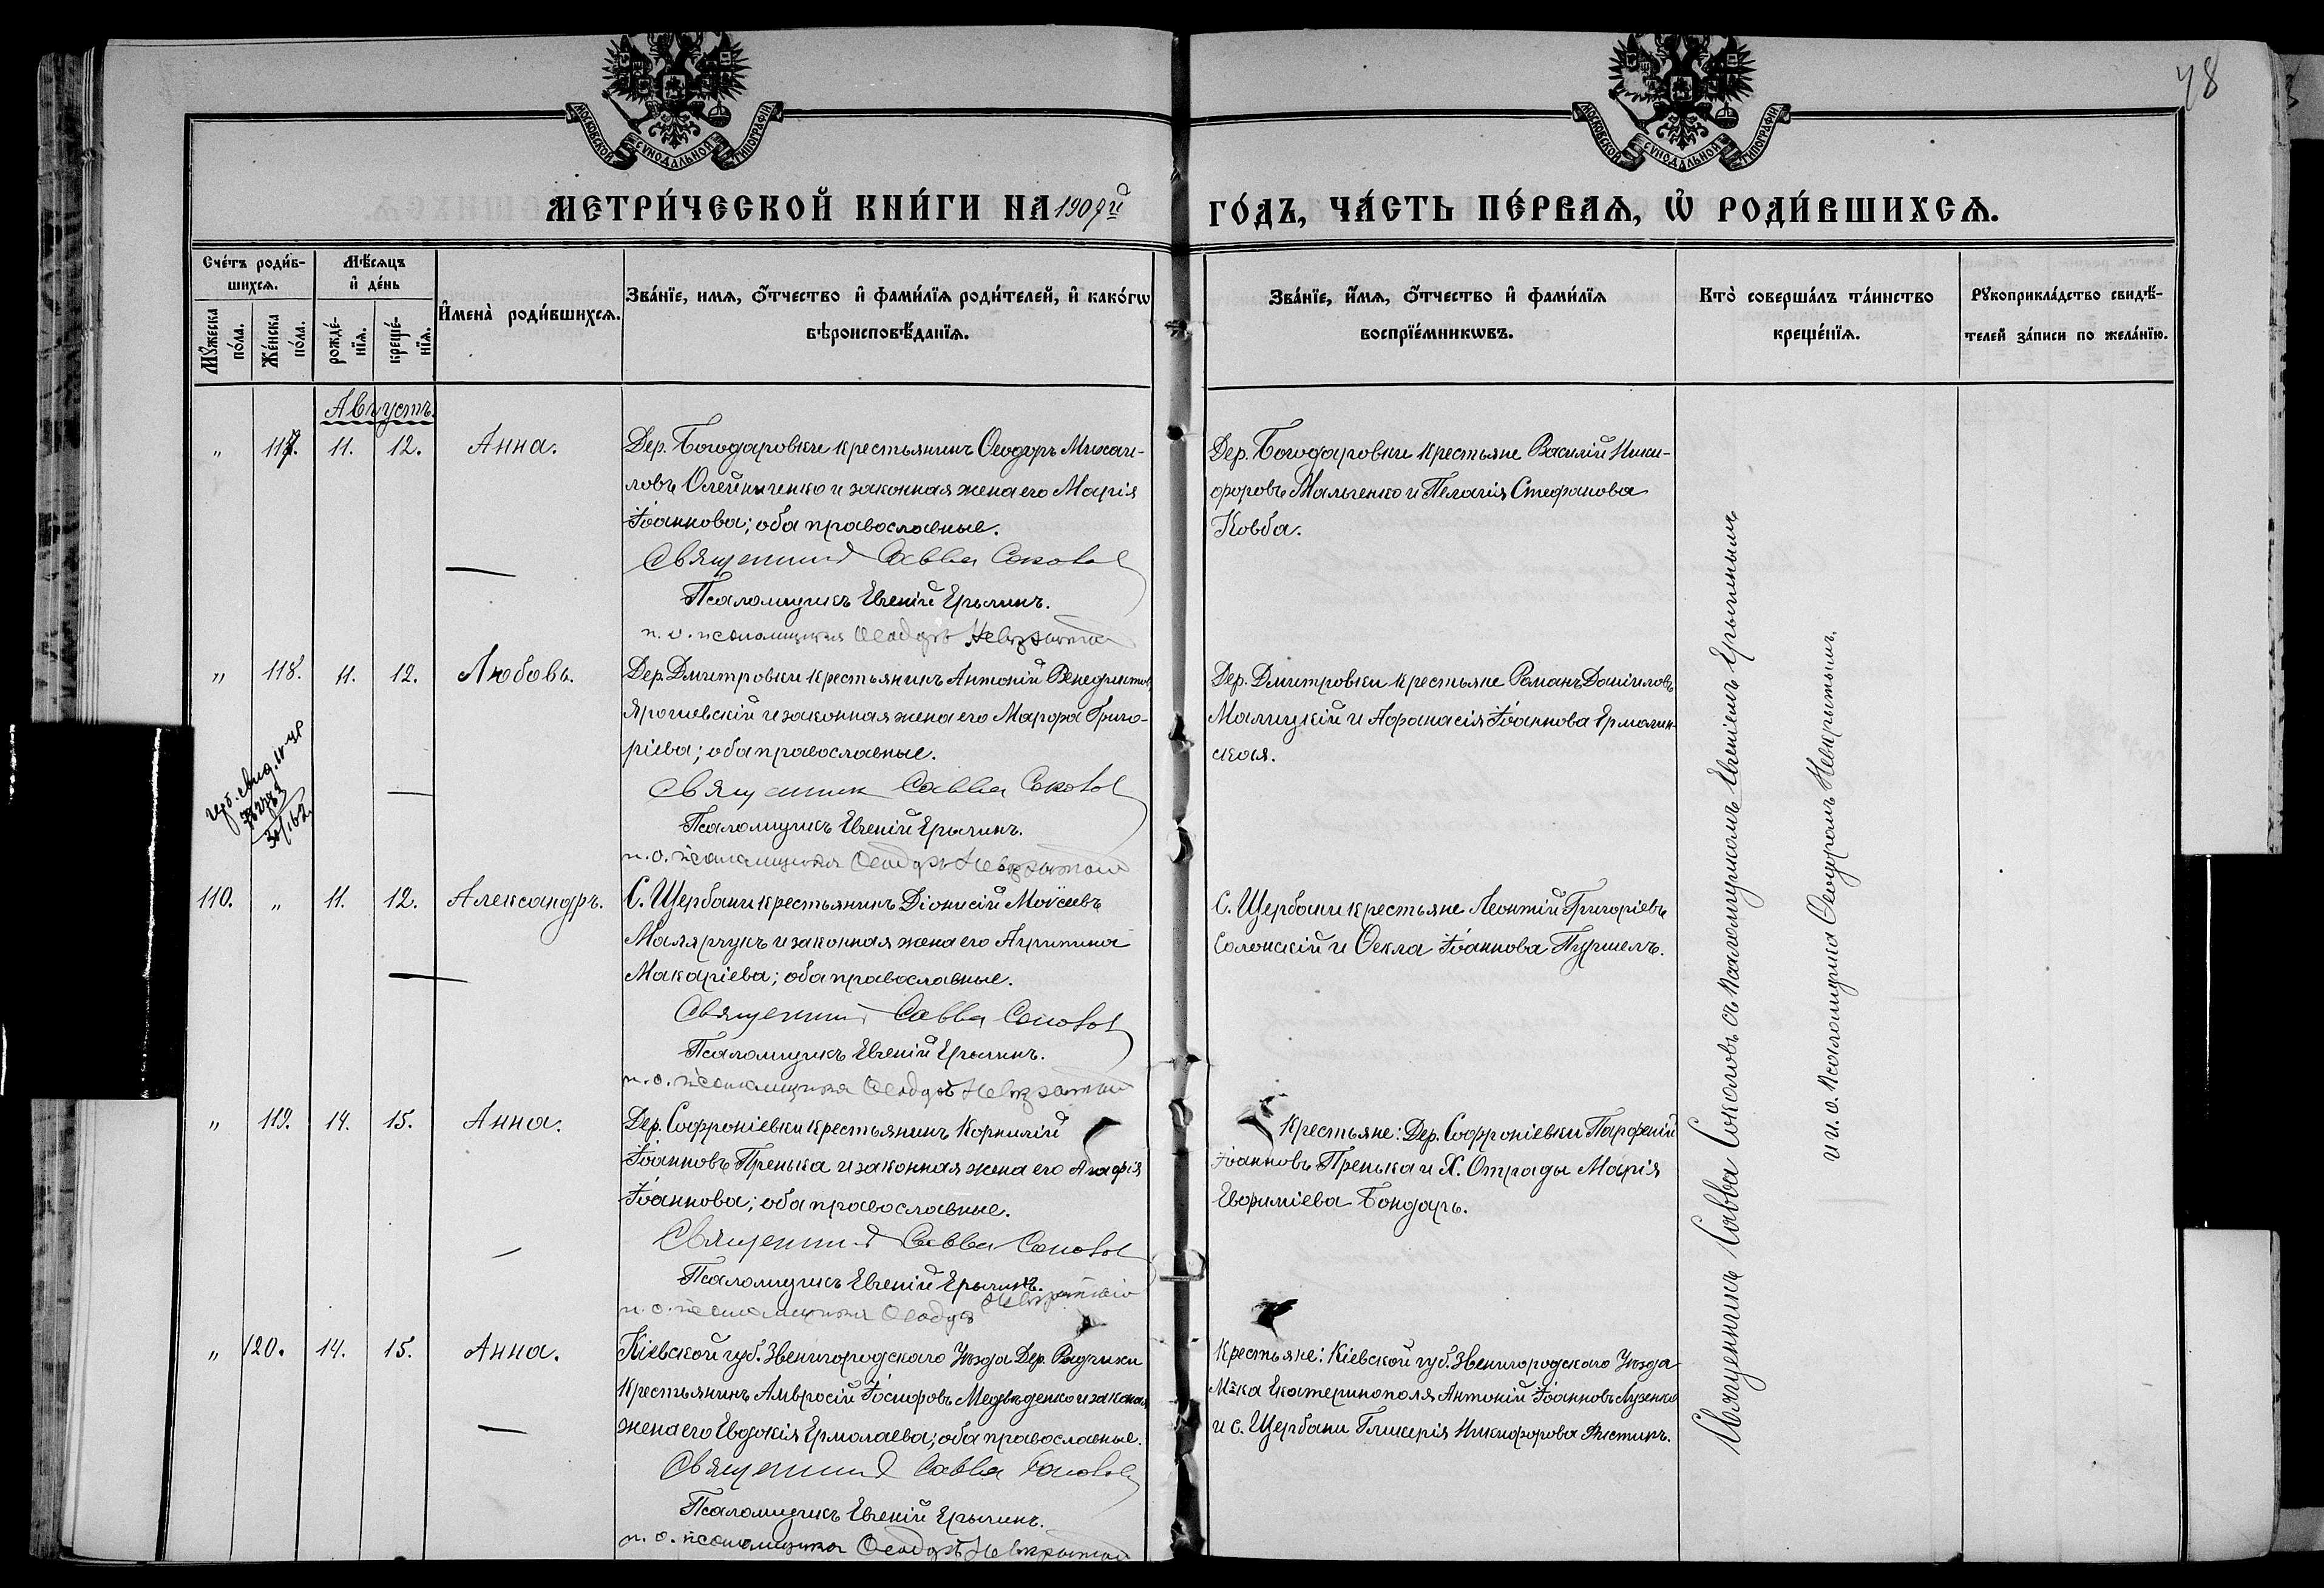 48
МОСКОВСКОЙ СѴНОДАЛЬНОЙ ТИПОГРАФІИ
МОСКОВСКОЙ СѴНОДАЛЬНОЙ ТИПОГРАФІИ
МЕТРИ́ЧЕСКОЙ КНИ́ГИ НА 1907й ГО́ДЪ, ЧА́СТЬ ПЕ́РВАѦ, Ѡ҆ РОДИ́ВШИХСѦ.
Сче́тъ роди́в-
шихсѧ.
Мꙋ́жеска по́ла.
Же́нска по́ла.
Мѣ́сѧцъ
и҆ де́нь
рожде́-
нїѧ.
креще́-
нїѧ.
И҆мена̀ роди́вшихсѧ.
Зва́нїе, имѧ, ѻ҆́тчество и҆ фами́лїѧ роди́телей, и҆ како́гѡ
вѣроисповѣ́данїѧ.
Зва́нїе, и҆́мѧ, ѻ҆́тчество и҆ фами́лїѧ
воспрїе́мникѡвъ.
Кто̀ соверша́лъ та́инство
креще́нїѧ.
Рꙋкоприкла́дство свидѣ́-
телей за́писи по жела́нїю.
Августъ.
„ 117. 11. 12. Анна.
Дер. Богодаровки крестьянинъ Ѳеодоръ Михаи-
ловъ Олейниченко и законная жена его Марія
Іоаннова; оба православные.
Священникъ Савва Соколов
Псаломщикъ Евгеній Ерыгинъ.
и. о. псаломщика Ѳеодоръ Невкрытый
Дер. Богодаровки крестьяне Василій Ники-
форовъ Мальченко и Пелагія Стефанова
Ковба.
„ 118. 11. 12. Любовь.
Дер. Дмитровки крестьянинъ Антоній Венедиктов
Ярошевскій и законная жена его Марфа Григо-
ріева; оба православные.
Священник Савва Соколов
Псаломщикъ Евгеній Ерыгинъ.
и. о. псаломщика Ѳеодоръ Невкрытый
Дер. Дмитровки крестьяне Романъ Даніиловъ
Малицкій и Афанасія Іоаннова Ермолин-
ская.
110. „ 11. 12. Александръ.
С. Щербани крестьянинъ Діонисій Моѵсеевъ
Малярчукъ и законная жена его Агрипина
Макаріева; оба православные.
Священник Савва Соколов
Псаломщикъ Евгеній Ерыгинъ.
и. о. псаломщика Ѳеодоръ Невкрытый
С. Щербани крестьяне Леонтій Григоріевъ
Солонскій и Ѳекла Іоаннова Пуршелъ.
„ 119. 14. 15. Анна.
Дер. Софроніевки крестьянинъ Корнилій
Іоанновъ Пренька и законная жена его Агафія
Іоаннова; оба православные.
Священник Савва Соколов
Псаломщикъ Евгеній Ерыгинъ.
и. о. псаломщика Ѳеодоръ Невкрытый
Крестьяне: Дер. Софроніевки Парфеній
Іоанновъ Пренька и Х. Отрады Марія
Евфиміева Бондарь.
„ 120. 14. 15. Анна.
Кіевской губ. Звенигородскаго Уѣзда Дер. Радчихи
крестьянинъ Амвросій Іосифовъ Медвѣденко и законая
жена его Евдокія Ермолаева; оба православные.
Священник Савва Соколов
Псаломщикъ Евгеній Ерыгинъ.
и. о. псаломщика Ѳеодоръ Невкрытый
Крестьяне: Кіевской губ. Звенигородскаго Уѣзда
М-ка Екатеринополя Антоній Іоанновъ Лузенко
и с. Щербани Гликерія Никифорова Фистинъ.
Священникъ Савва Соколовъ съ псаломщикомъ Евгеніемъ Ерыгинымъ
и и. о. псаломщика Ѳеодоромъ Невкрытымъ.